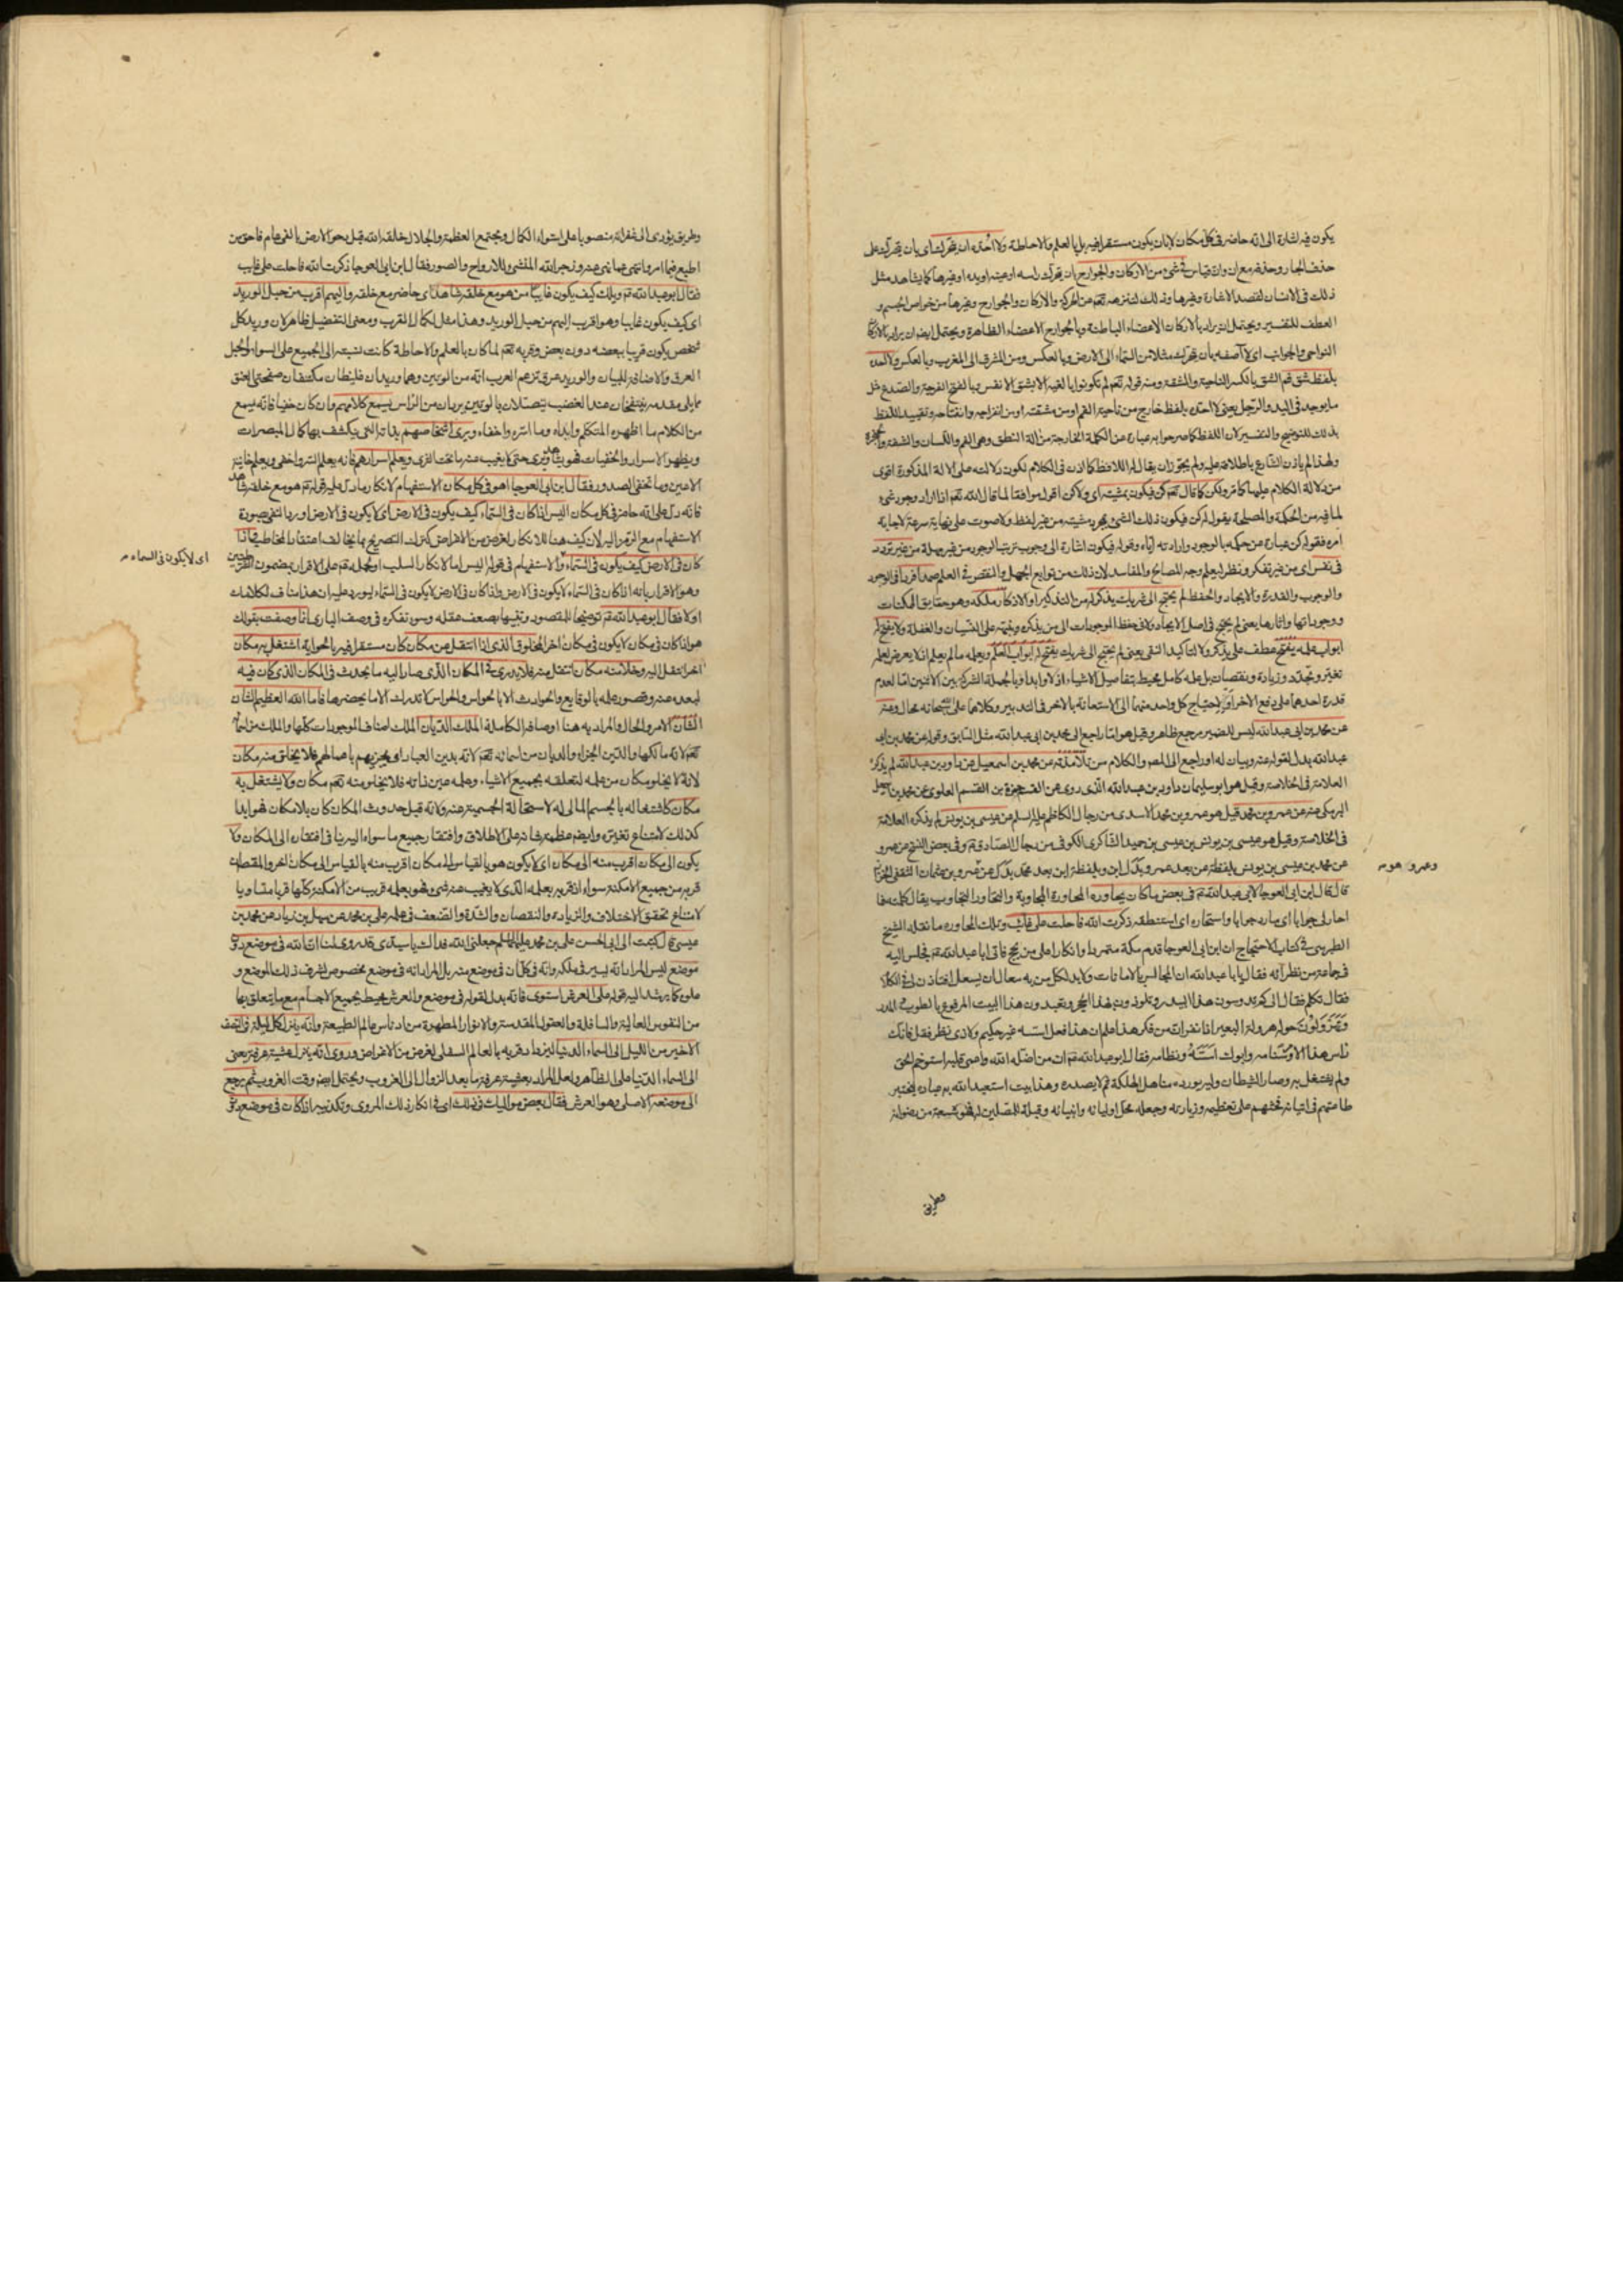 يكون فيه اشارة الى انه حاضر فى كل مكان لا بان يكون مستقرا فيه بل بالعلم والاحاطة ولا احده ان يتحرك اى بان يتحرك على
حذف الجار وحذفه مع ان وان قياس فى شئ من الاركان والجوارح بان يتحرك راسه او عينه او يده او غيرها كما يشاهد مثل
ذلك فى الانسان لقصد الاشارة وغيرها وذلك لتنزهه تعم عن الحركة والاركان والجوارح وغيرها من خواص الجسم و
العطف للتفسير ويحتمل ان يراد بالاركان الاعضاء الباطنة وبالجوارح الاعضاء الظاهرة ويحتمل ايضا ان يراد بالاركان
النواحى والجوانب اى لا آصفه بأن يتحرك مثلا من السماء الى الارض وبالعكس ومن المشرق الى المغرب وبالعكس ولا احده
بلفظ شق فم الشق بالكسر الناحية والمشقة ومنه قوله تعم لم تكونوا بالغيه الا بشق الانفس وبالفتح الفرجة والصدع مثل
ما يوجد فى اليد والرجل يعنى لا احده بلفظ خارج من ناحية الفم او من مشقته او من انفراجه وانفتاحه وتقييد اللفظ
بذلك للتوضيح والتفسير لان اللفظ كما صرحوا به عبارة عن الكلمة الخارجة من آلة النطق وهى الفم واللسان والشفة والحنجرة
ولهذا لم ياذن الشارع باطلاقه عليه ولم يجوز ان يقال له اللافظ كما اذن فى الكلام لكون دلالته على الالة المذكورة اقوى
من دلالة الكلام عليها كما مر ولكن كما قال تعم كن فيكون بمشيته اى ولكن اقول موافقا لما قال الله تعم اذا اراد وجود شئ
لما فيه من الحكمة والمصلحة يقول له كن فيكون ذلك الشئ بمجرد مشيته من غير لفظ ولا صوت على نهاية سرعة لاجابة
امره فقوله كن عبارة عن حكمه بالوجود وارادته اياه وقوله فيكون اشارة الى وجوب ترتب الوجود من غير مهلة من غير تردد
فى نفس اى من غير تفكر ونظر ليعلم وجه المصالح والمفاسد لان ذلك من توابع الجهل والنقص فى العلم صمدا فردا فى الوجود
والوجوب والقدرة والايجاد والحفظ لم يحتج الى شريك يذكر له من التذكير او الاذكار ملكه وهو حقايق الممكنات
ووجوداتها واثارها يعنى لم يحتج فى اصل الايجاد ولا فى حفظ الموجودات الى من يذكره وينبهه على النسيان والغفلة ولا يفتح له
ابواب علمه يفتح عطف على يذكر ولا لتاكيد النفى يعنى لم يحتج الى شريك يفتح له ابواب العلم ويعلمه ما لم يعلم اذ لا يعرض لعلمه
تغير وتجدد وزيادة ونقصان بل علمه كامل محيط بتفاصيل الاشياء ازلا وابدا وبالجملة الشركة بين الاثنين اما لعدم
قدرة احدهما على دفع الاخر او لاحتياج كل واحد منهما الى الاستعانة بالاخر فى التدبير وكلاهما على سبحانه محال وعنه
عن محمد بن ابى عبد الله ليس للضمير مرجع ظاهر وقيل هو اما راجع الى محمد بن ابى عبد الله مثل السابق وقوله عن محمد بن ابى
عبد الله بدل لقوله عنه وبيان له او راجع الى المصر والكلام من تلامذته عن محمد بن اسمعيل عن داود بن عبد الله لم يذكره
العلامة فى الخلاصة وقيل هو ابو سليمان داود بن عبد الله الذى روى عن القسم حمزة بن القسم العلوى عن محمد بن اسمعيل
البرمكى عنه عن عمرو بن محمد قيل هو عمرو بن محمد الاسدى من رجال الكاظم عليه السلم عن عيسى بن يونس لم يذكره العلامة
فى الخلاصة وقيل هو عيسى بن يونس بن عيسى بن حميد الشاكرى الكوفى من رجال الصادق ع وفى بعض النسخ عن عمرو
عن محمد بن عيسى بن يونس بلفظة عن بعد عمرو بدل ابن وبلفظة ابن بعد محمد بدل عن عمرو بن عثمان الثقفى الخزاز
قال قال ابن ابى العوجا لابى عبد الله ع فى بعض ما كان يحاوره المحاورة المجاوبة والتحاور التجاوب يقال كلمته فما
احار لى جوابا اى ما رد جوابا واستحاره اى استنطقه ذكرت الله فاحلت على غائب وتلك المحاوره ما نقله الشيخ
الطبرسى فى كتاب الاحتجاج ان ابن ابى العوجا قدم مكة متمردا وانكارا على من يحج فاتى ابا عبد الله ع فجلس اليه
فى جماعة من نظرائه فقال يا ابا عبد الله ان المجالس بالامانات ولا بد لكل من به سعال ان يسعل افتاذن لى فى الكلام
فقال تكلم فقال الى كم تدوسون هذا البيدر وتلوذون بهذا الحجر وتعبدون هذا البيت المرفوع بالطوب والمدر
وتهرولون حوله هرولة البعير اذا نفر ان من فكر هذا علم ان هذا فعل اسسه غير حكيم ولا ذى نظر فقل فانك
راس هذا الامر وسنامه وابوك اسه ونظامه فقال ابو عبد الله ع ان من اضله الله واعمى قلبه استوخم الحق
ولم يستعذ به وصار الشيطان وليه يورده مناهل الهلكة ثم لا يصدره وهذا بيت استعبد الله به عباده ليختبر
طاعتهم فى اتيانه فحثهم على تعظيمه وزيارته وجعله محل اوليائه وانبيائه وقبلة للمصلين له فهو شعبة من رضوانه
وطريق
وعمرو هو م
وطريق يؤدى الى غفرانه منصوبا على استواء الكمال ومجتمع العظمة والجلال خلقه الله قبل دحو الارض بالفى عام فاحق من
اطيع فيما امر وانتهى عما نهى عنه وزجر الله المنشئ للارواح والصور فقال ابن ابى العوجا ذكرت الله فاحلت على غايب
فقال ابو عبد الله ع ويلك كيف يكون غايبا من هو مع خلقه شاهد اى حاضر مع خلقه واليهم اقرب من حبل الوريد
اى كيف يكون غايبا وهو اقرب اليهم من حبل الوريد وهذا مثل لكمال القرب ومعنى التفضيل ظاهر لان وريد كل
شخص يكون قريبا ببعضه دون بعض وقربه تعم لما كان بالعلم والاحاطة كانت نسبته الى الجميع على السواء والحبل
العرق والاضافة للبيان والوريد عرق تزعم العرب انه من الوتين وهما وريدان غليظان مكتنفان صفحتى العنق
مما يلى مقدمه ينتفخان عند الغضب يتصلان بالوتين يردان من الراس يسمع كلامهم وان كان خفيا فانه يسمع
من الكلام ما اظهره المتكلم وابداه وما استره واخفاه ويرى اشخاصهم بذاته التى ينكشف بها كمال المبصرات
ويظهر الاسرار والخفيات فهو يشاهد ويرى حتى لا يغيب عنه ما تحت الثرى ويعلم اسرارهم فانه يعلم السر واخفى ويعلم خائنة
الاعين وما تخفى الصدور فقال ابن ابى العوجا اهو فى كل مكان الاستفهام لانكار ما دل عليه قوله ع هو مع خلقه شاهد
فانه دل على انه حاضر فى كل مكان اليس اذا كان فى السماء كيف يكون فى الارض اى لا يكون فى الارض اورد النفى بصورة
الاستفهام مع الرمز اليه لان كيف هنا للانكار لغرض من الاغراض كترك التصريح بما يخالف اعتقاد المخاطب واذا
كان فى الارض كيف يكون فى السماء والاستفهام فى قوله اليس اما لانكار السلب او لحمله ع على الاقرار بمضمون الشرطيتين
اى لا يكون فى السماء م
وهو الاقرار بانه اذا كان فى السماء لا يكون فى الارض واذا كان فى الارض لا يكون فى السماء ليورد عليه ان هذا مناف لكلامك
اولا فقال ابو عبد الله ع توضيحا للمقصود وتنبيها بضعف عقله وسوء تفكره فى وصف البارى انما وصفت بقولك
هو اذا كان فى مكان لا يكون فى مكان اخر المخلوق الذى اذا انتقل عن مكان كان مستقرا فيه بالحواية اشتغل به مكان
اخر انتقل اليه وخلا منه مكان انتقل منه فلا يدرى فى المكان الذى صار اليه ما يحدث فى المكان الذى كان فيه
لبعده عنه وقصور علمه بالوقايع والحوادث الا بالحواس والحواس لا تدرك الا ما يحضرها فاما الله العظيم الشان
الشان الامر والحال والمراد به هنا اوصافه الكاملة الملك الديان الملك اصناف الموجودات كلها والملك من اسمائه
تعم لانه مالكها والدين الجزاء والديان من اسمائه تعم لانه يدين العباد اى يجزيهم باعمالهم فلا يخلو منه مكان
لانه لا يخلو مكان من علمه لتعلقه بجميع الاشياء وعلمه عين ذاته فلا يخلو منه تعم مكان ولا يشتغل به
مكان كاشتغاله بالجسم المالى له لاستحالة الجسمية عنه ولانه قبل حدوث المكان كان بلا مكان فهو ابدا
كذلك لامتناع تغيره وايضا عظمة شانه على الاطلاق وافتقار جميع ما سواه اليه ينافى افتقاره الى المكان ولا
يكون الى مكان اقرب منه الى مكان اى لا يكون هو بالقياس الى مكان اقرب منه بالقياس الى مكان اخر والمقصود ان
قربه من جميع الامكنة سواء اذ قربه بعلمه الذى لا يغيب عنه شئ فهو بعلمه قريب من الامكنة كلها قربا متساويا
لامتناع تحقق الاختلاف والزيادة والنقصان والشدة والضعف فى علمه على بن محمد عن سهل بن زياد عن محمد بن
عيسى قال كتبت الى ابى الحسن على بن محمد عليهما السلم جعلنى الله فداك يا سيدى قد روى لنا ان الله فى موضع دون
موضع ليس المراد انه يسير فى ملكه وانه فى كل آن فى موضع منه بل المراد انه فى موضع مخصوص لشرف ذلك الموضع و
علوه كما يرشد اليه قوله على العرش استوى فانه بدل لقوله فى موضع والعرش محيط بجميع الاجسام مع ما يتعلق بها
من النفوس العالية والسافلة والعقول المقدسة والانوار المطهرة من ادناس عالم الطبيعة وانه ينزل كل ليلة فى النصف
الاخير من الليل الى السماء الدنيا ليزداد قربه بالعالم السفلى لغرض من الاغراض وروى انه ينزل عشية عرفة يعنى
الى السماء الدنيا على الظاهر ولعل المراد بعشية عرفة ما بعد الزوال الى الغروب ويحتمل ايضا وقت الغروب ثم يرجع
الى موضعه الاصلى وهو العرش فقال بعض مواليك فى ذلك اى فى انكار ذلك المروى وتكذيبه اذا كان فى موضع دون